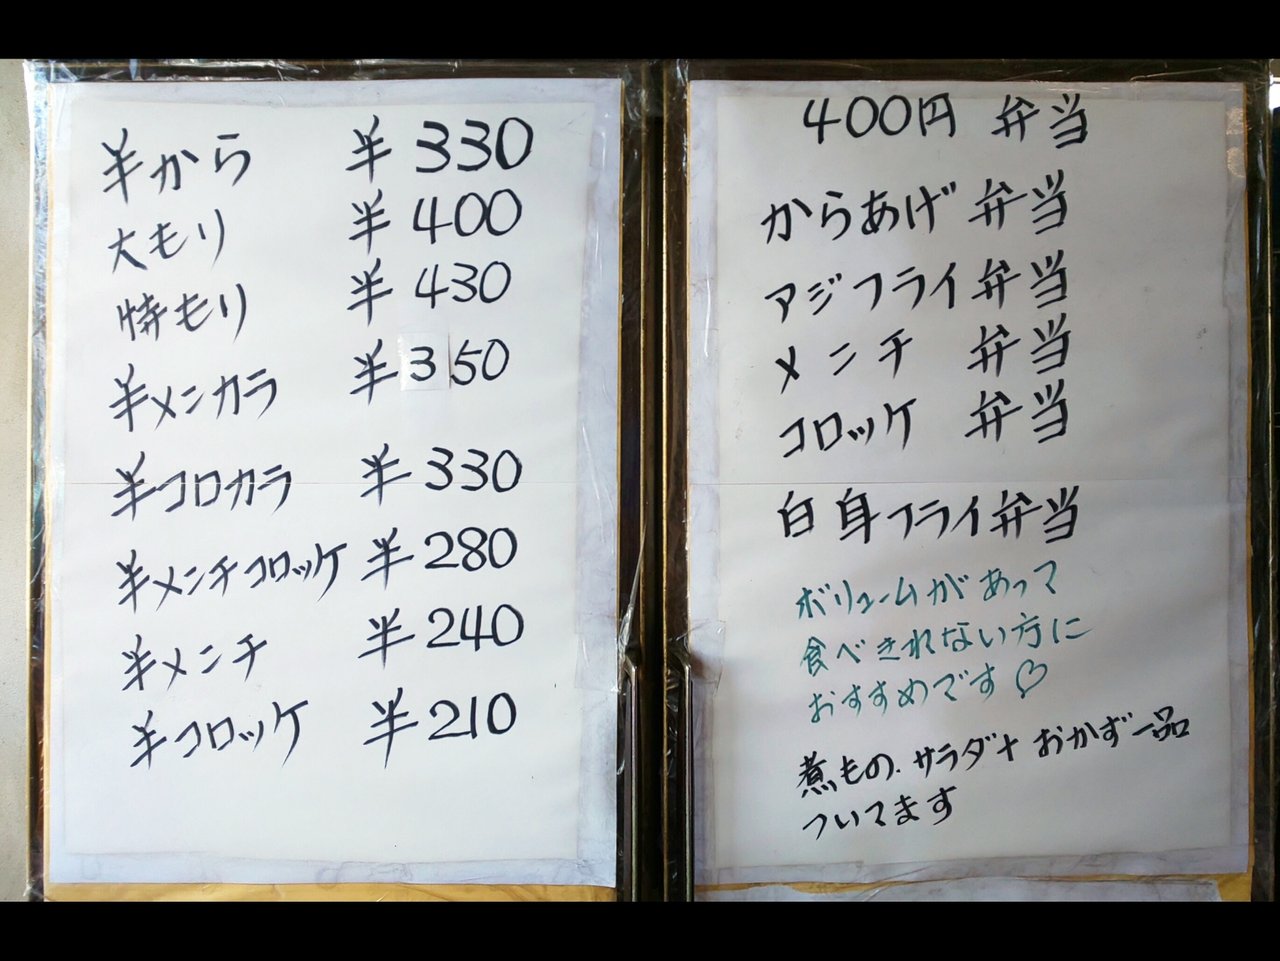 半から 半330
大もり 半400
特もり 半430
半メンカラ 半350
半コロカラ 半330
半メンチコロッケ 半280
半メンチ 半240
半コロッケ 半210
400円 弁当
からあげ 弁当
アジフライ弁当
メンチ 弁当
コロッケ 弁当
白身フライ弁当
ボリュームがあって
食べきれない方に
おすすめです♡
煮もの.サラダ+おかず一品
ついてます